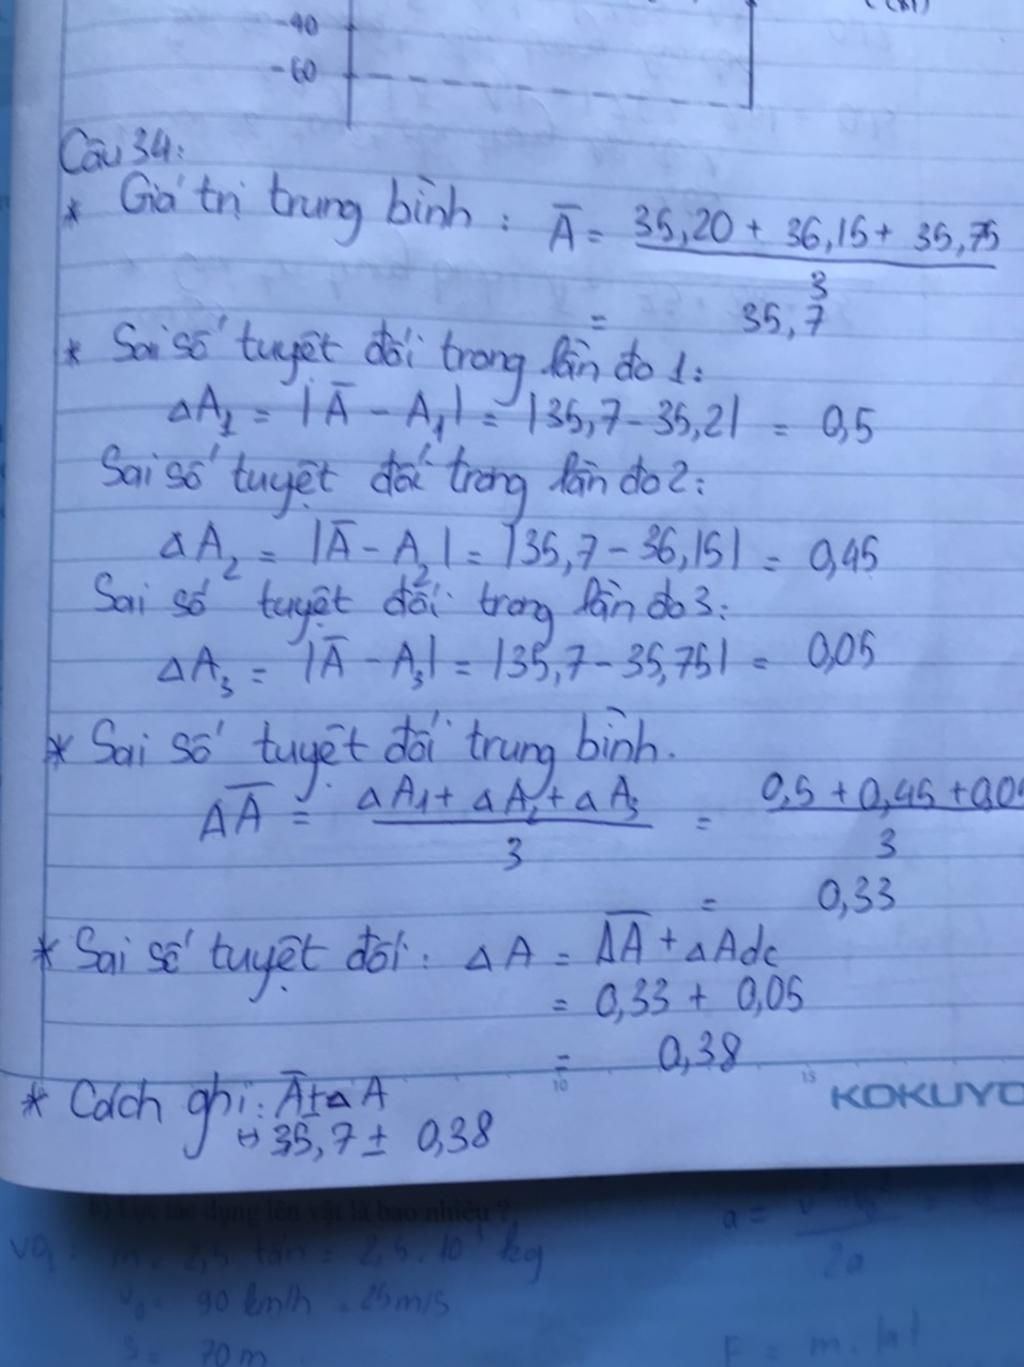 -40
-60
Câu 34:
* Giá trị trung bình : A̅ = 35,20 + 36,15 + 35,75
3
= 35,7
* Sai số tuyệt đối trong lần đo 1:
ΔA₁ = |A̅ - A₁| = |35,7 - 35,2| = 0,5
Sai số tuyệt đối trong lần đo 2:
ΔA₂ = |A̅ - A₂| = |35,7 - 36,15| = 0,45
Sai số tuyệt đối trong lần đo 3:
ΔA₃ = |A̅ - A₃| = |35,7 - 35,75| = 0,05
* Sai số tuyệt đối trung bình.
ΔA̅ = ΔA₁ + ΔA₂ + ΔA₃ = 0,5 + 0,45 + 0,0
3 3
= 0,33
* Sai số tuyệt đối: ΔA = Δ̅A̅ + ΔAdc
= 0,33 + 0,05
= 0,38
10 15 KOKUYO
* Cách ghi: A̅ ± ΔA
↔ 35,7 ± 0,38
b) Lực tác dụng lên vật là bao nhiêu ?
m = 2,5 tấn = 2,5 . 10 kg
V₀ = 90 km/h = 25 m/s
S = 70 m
a =
2a
F = m.